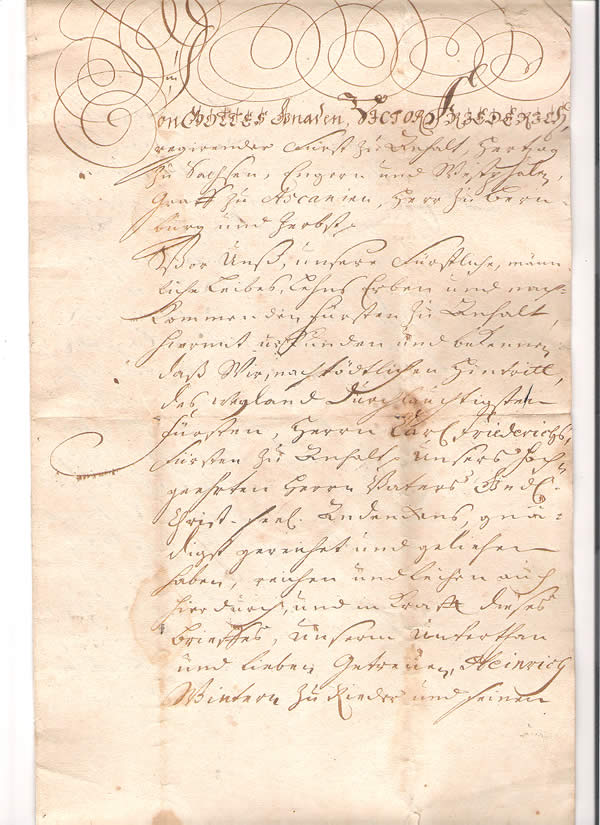 Von GOTTES Gnaden, VICTOR FRIEDERICH,
regirender Fürst zu Anhalt, Hertzog
zu Sachsen, Engern und Westphalen,
Graff zu Ascanien, Herr zu Bern-
burg und Zerbst
Vor Unß, unsere Fürstliche, männ
liche Leibes, Lehns Erben und nach-
kommenden Fürsten zu Anhalt,
hiermit urkunden und bekennen,
daß Wir, nach tödtlichen Hintritt,
des weyland Durchlauchtigsten
Fürsten, Herrn Carl Friederichs,
Fürsten zu Anhalt unsers Hoch-
geehrten Herrn Vaters Gnd.
Christ-seel. Andenckens, gnä-
digst gereichet und geliehen
haben, reichen und leihen auch
hierdurch, und in Krafft dieses
Brieffes, Unserm Unterthan
und lieben Getreuen, Heinrich
Wintern zu Rieder und seinen